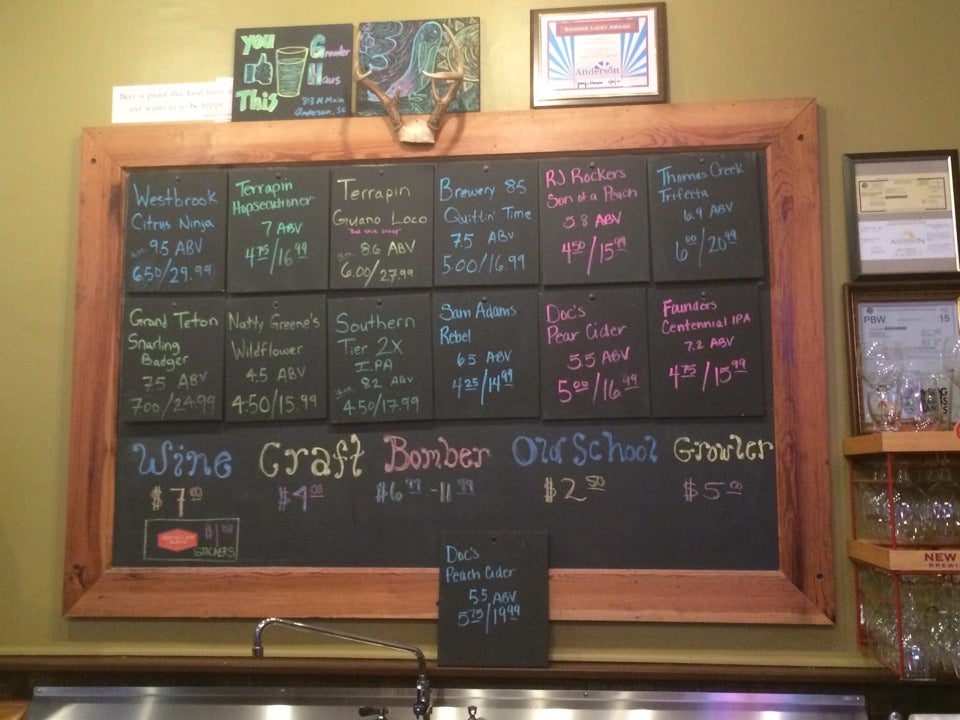 Beer is proof that God loves us
and wants us to be happy
you
This
Growler
Haus
813 N Main
Anderson, SC
SHINING LIGHT AWARD
Anderson
Westbrook
Citrus Ninja
9.5 ABV
6.50/29.99
Terrapin
Hopsecutioner
7 ABV
4.75/16.99
Terrapin
Guano Loco
"Bat shit crazy"
8.6 ABV
6.00/27.99
Brewery 85
Quittin' Time
7.5 ABV
5.00/16.99
RJ Rockers
Son of a Peach
5.8 ABV
4.50/15.99
Thomas Creek
Trifecta
6.9 ABV
6.00/20.99
Grand Teton
Snarling
Badger
7.5 ABV
7.00/24.99
Natty Greene's
Wildflower
4.5 ABV
4.50/15.99
Southern
Tier 2X
IPA
8.2 ABV
4.50/17.99
Sam Adams
Rebel
6.5 ABV
4.25/14.99
Doc's
Pear Cider
5.5 ABV
5.00/16.99
Founders
Centennial IPA
7.2 ABV
4.75/15.99
Wine
$7.00
Craft
$4.00
Bomber
$6.99-11.99
Old School
$2.50
Growler
$5.00
$1.00
STICKERS
Doc's
Peach Cider
5.5 ABV
5.75/19.99
PBW 15
NEW